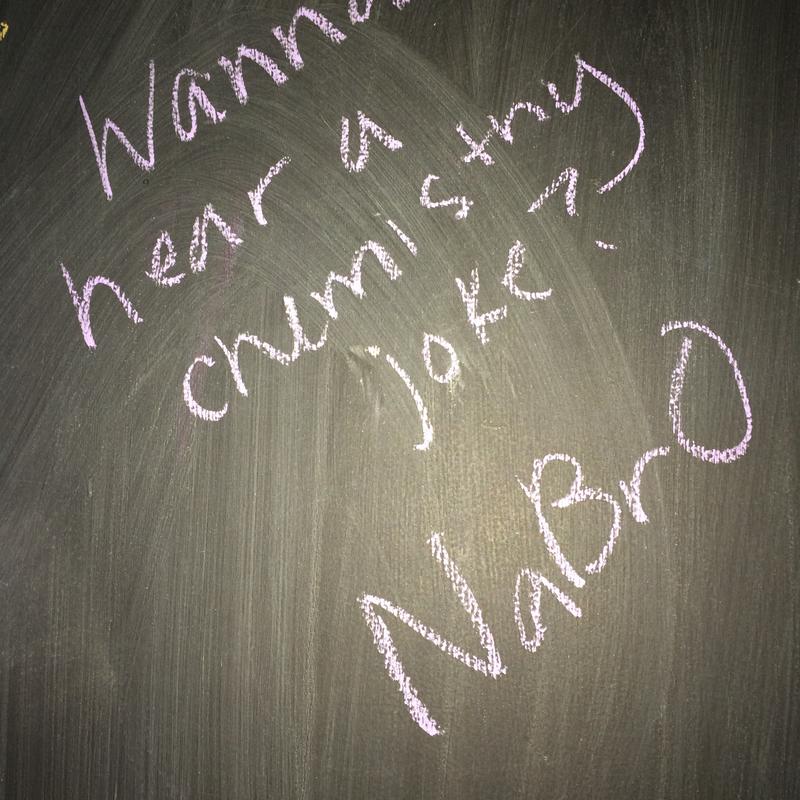 Wanna
hear a
chemistry
joke?
NaBrO